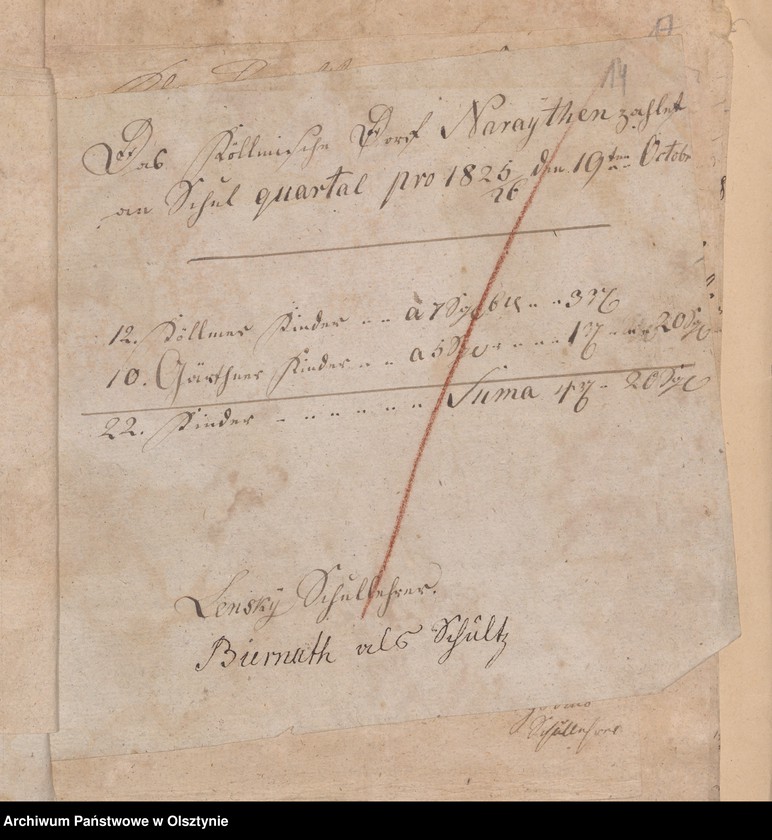 17
14
Das Köllmische Dorf Naraythen zahlet
an Schul quartal pro 1825/26 den 19ten Octobr
12. Köllmer Kinder - - a 7 Sgr 6 - - 3 rtl
10. Gärthner Kinder - - a 5 Sgr - - - 1 rtl - - 20 Sgr
22. Kinder - - - - - - Suma 4 rtl - 20 Sgr
Lensky Schullehrer.
Biernath als Schultz
Schullehrer
Archiwum Państwowe w Olsztynie